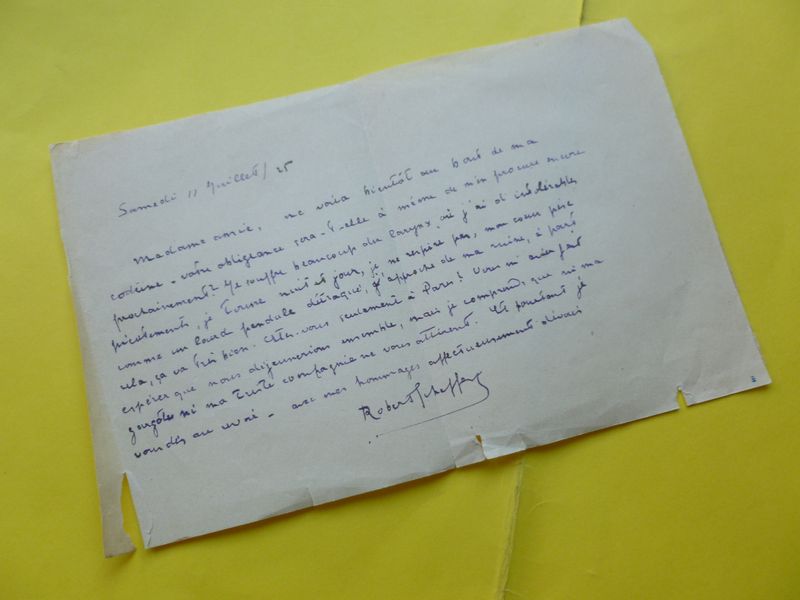 Samedi 11 Juillet / 25
Madame amie, me voici bientôt au bout de ma
codéine - votre obligeance sera-t-elle à même de m'en procurer encore
prochainement? Je souffre beaucoup du larynx où j'ai d'intolérables
picotements, je tousse nuit et jour, je ne respire pas, mon cœur pèse
comme un lourd pendule détraqué, j'approche de ma ruine, à part
cela, ça va très bien. Êtes-vous seulement à Paris? Vous m'aviez fait
espérer que nous déjeunerions ensemble, mais je comprends que ni ma
gargote ni ma triste compagnie ne vous attirent. Et pourtant je
voudrais au revoir - avec mes hommages affectueusement dévoués
Robert Scheffer